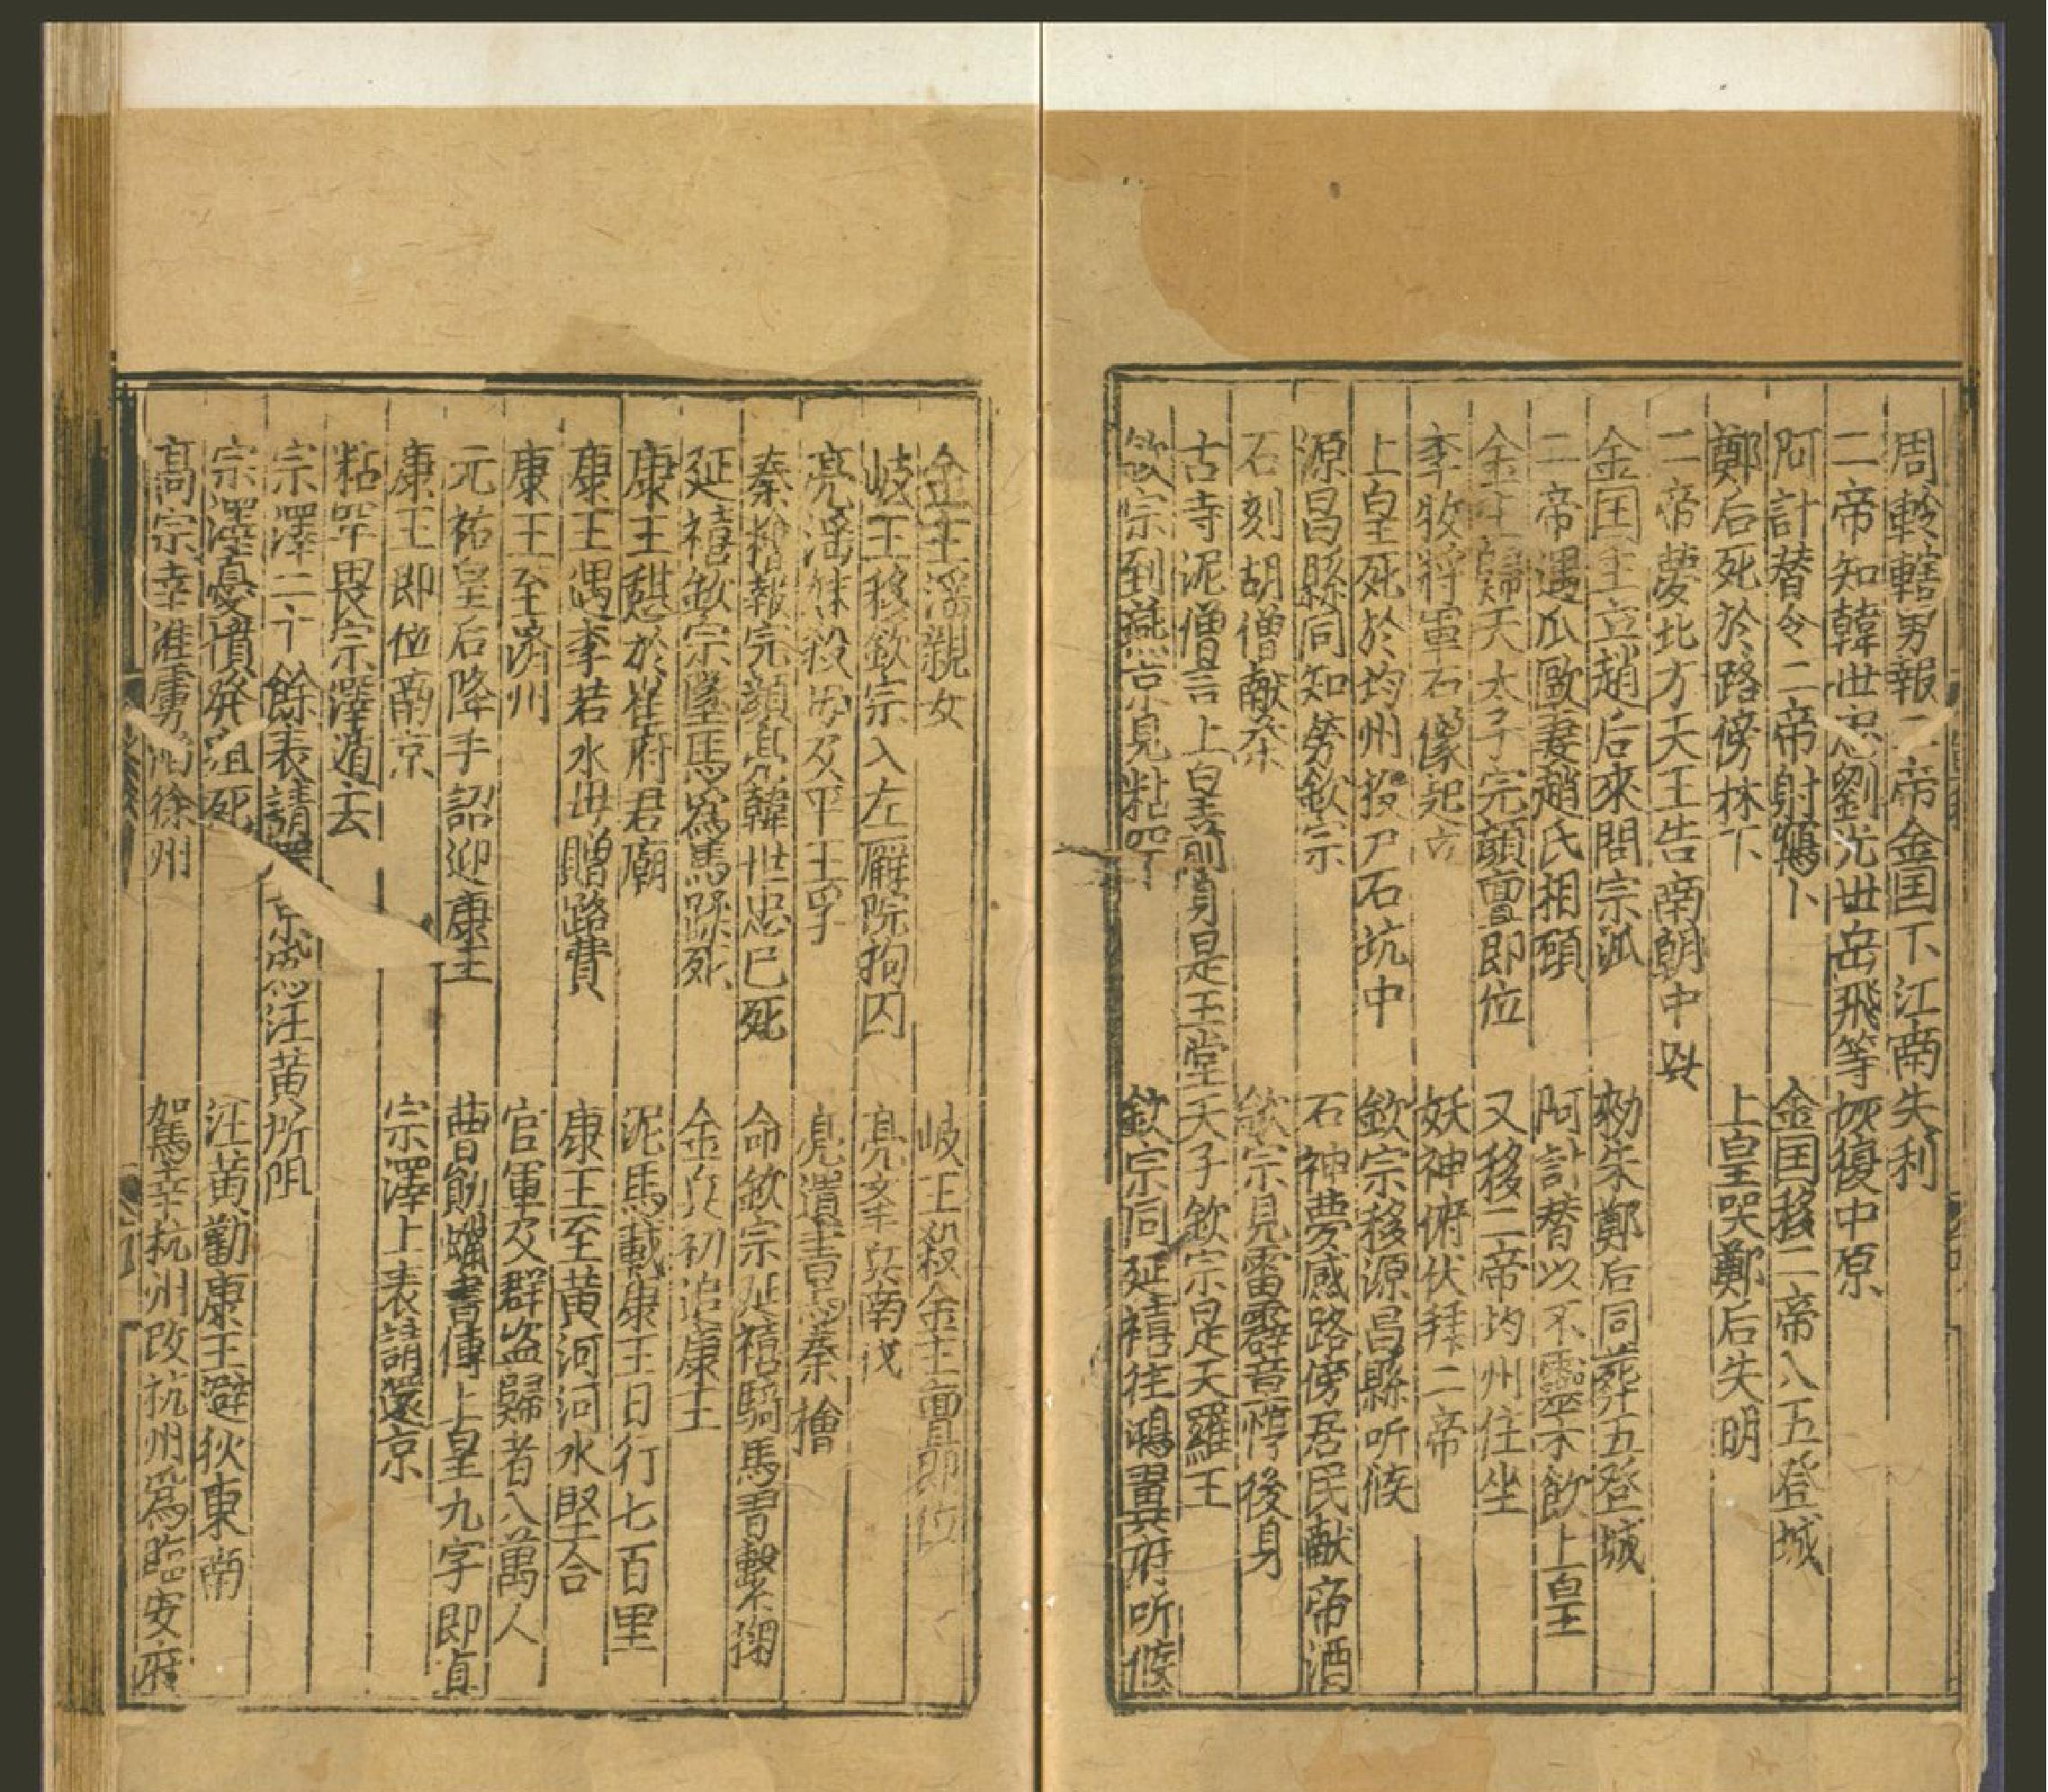 周軨轄男報二帝金国下江南失利
二帝知韓世忠劉光世岳飛等恢復中原
阿計替令二帝射鵶卜　金国移二帝入五登城
鄭后死於路傍林下　上皇哭鄭后失明
二帝夢北方天王告南朝中
金国主立趙后來問宗派　勑朱鄭后同葬五登城
二帝遇瓜歐妻趙氏相顧　阿計替以不靈不飲上皇
金主歸天太子完顔亶即位　又移二帝均州住坐
李牧將軍石像起立　妖神俯伏拜二帝
上皇死於均州投尸石坑中　欽宗移源昌縣听候
源昌縣同知勞欽宗　石神夢感路傍居民献帝酒
石刻胡僧献茶　欽宗見雷霹章惇後身
古寺泥僧言上皇前身是玉堂天子欽宗是天羅王
欽宗到燕京見粘罕　欽宗同延禧往鴻翼府听候
金主淫親女　岐王殺金主亶即位
岐王移欽宗入左廨院拘囚　亮举兵南伐
亮淫妹殺母及平王孚　亮遺書馬秦檜
秦檜報完顔亮韓世忠已死　命欽宗延禧騎馬習擊掬
延禧欽宗墜馬爲馬踩死　金兵初追康王
康王憇於崔府君廟　泥馬載康王日行七百里
康王遇李若水母贈路費　康王至黄河河水堅合
康王至濟州　官軍及群盗歸者八萬人
元祐皇后降手詔迎康王　曹勛蠟書傳上皇九字即真
康王即位南京　宗澤上表請還京
粘罕畏宗澤遁去
宗澤二十餘表請還京為汪黄所阻
宗澤憂憤發疽死　汪黄勸康王避狄東南
高宗幸淮虜陷徐州　駕幸杭州改杭州爲臨安府